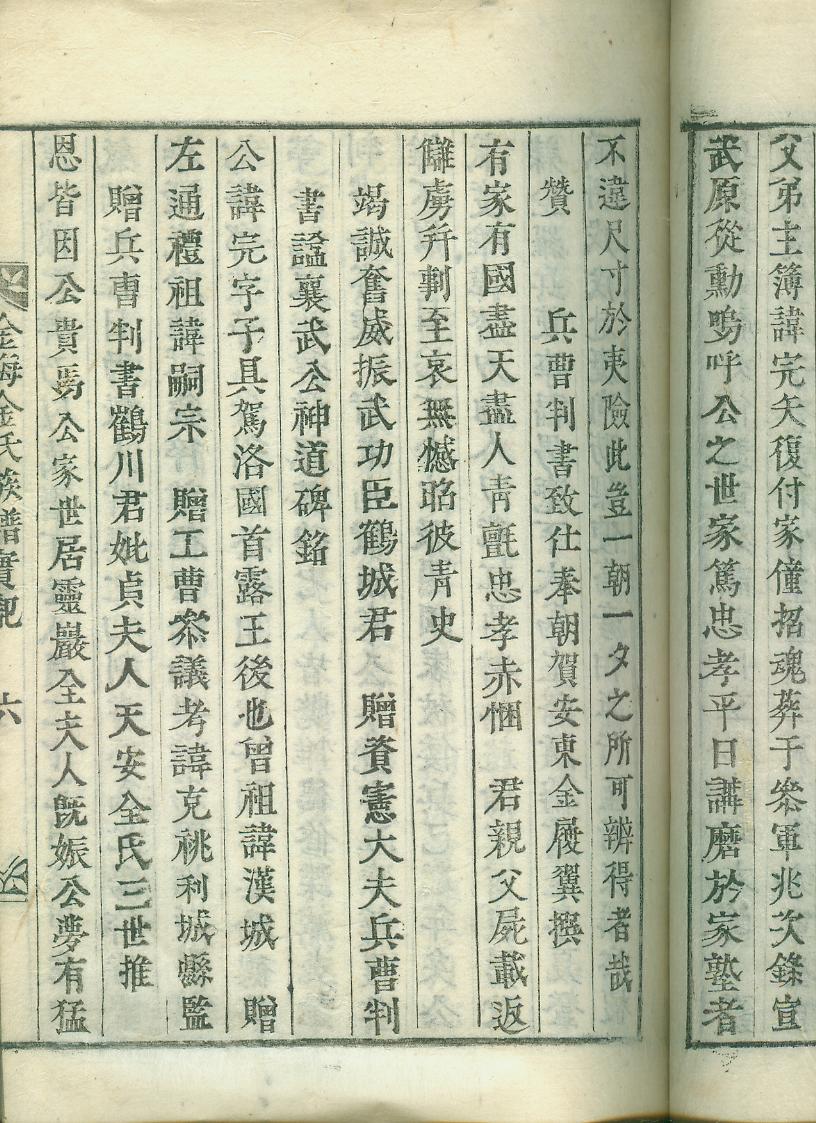 父弟主簿諱完矢復付家僮招魂葬于參軍兆次錄宣
武原從勳嗚呼公之世家篤忠孝平日講磨於家塾者
不違尺寸於夷險此豈一朝一夕之所可辨得者哉
贊 兵曹判書致仕奉朝賀安東金履翼撰
有家有國盡天盡人靑氈忠孝赤悃 君親父屍載返
讎虜幷剸至哀無憾昭彼靑史
竭誠奮威振武功臣鶴城君 贈資憲大夫兵曹判
書謚襄武公神道碑銘
公諱完字子具駕洛國首露王後也曾祖諱漢城 贈
左通禮祖諱嗣宗 贈工曹參議考諱克祧利城縣監
贈兵曹判書鶴川君妣貞夫人天安全氏三世推
恩皆因公貴焉公家世居靈巖全夫人旣娠公夢有猛
金海金氏族譜實記 六